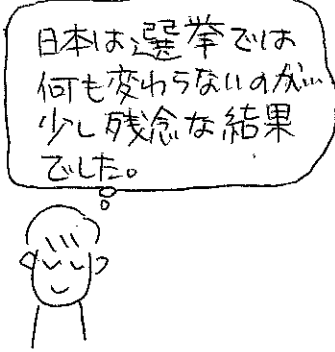 日本は選挙では
何も変わらないのか…
少し残念な結果
でした。